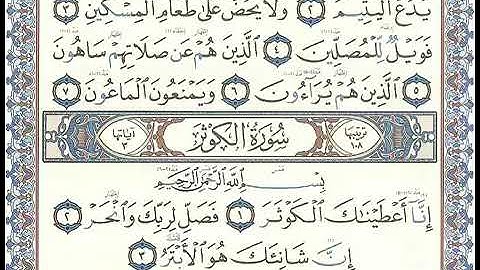 يَدُعُّ الْيَتِيمَ ٢ وَلَا يَحُضُّ عَلَىٰ طَعَامِ الْمِسْكِينِ ٣
فَوَيْلٌ لِّلْمُصَلِّينَ ٤ الَّذِينَ هُمْ عَن صَلَاتِهِمْ سَاهُونَ
٥ الَّذِينَ هُمْ يُرَآءُونَ ٦ وَيَمْنَعُونَ الْمَاعُونَ ٧
ترتيبها ١٠٨ سُورَةُ الْكَوْثَرِ آياتها ٣
بِسْمِ اللَّهِ الرَّحْمَٰنِ الرَّحِيمِ
إِنَّا أَعْطَيْنَاكَ الْكَوْثَرَ ١ فَصَلِّ لِرَبِّكَ وَانْحَرْ ٢
إِنَّ شَانِئَكَ هُوَ الْأَبْتَرُ ٣